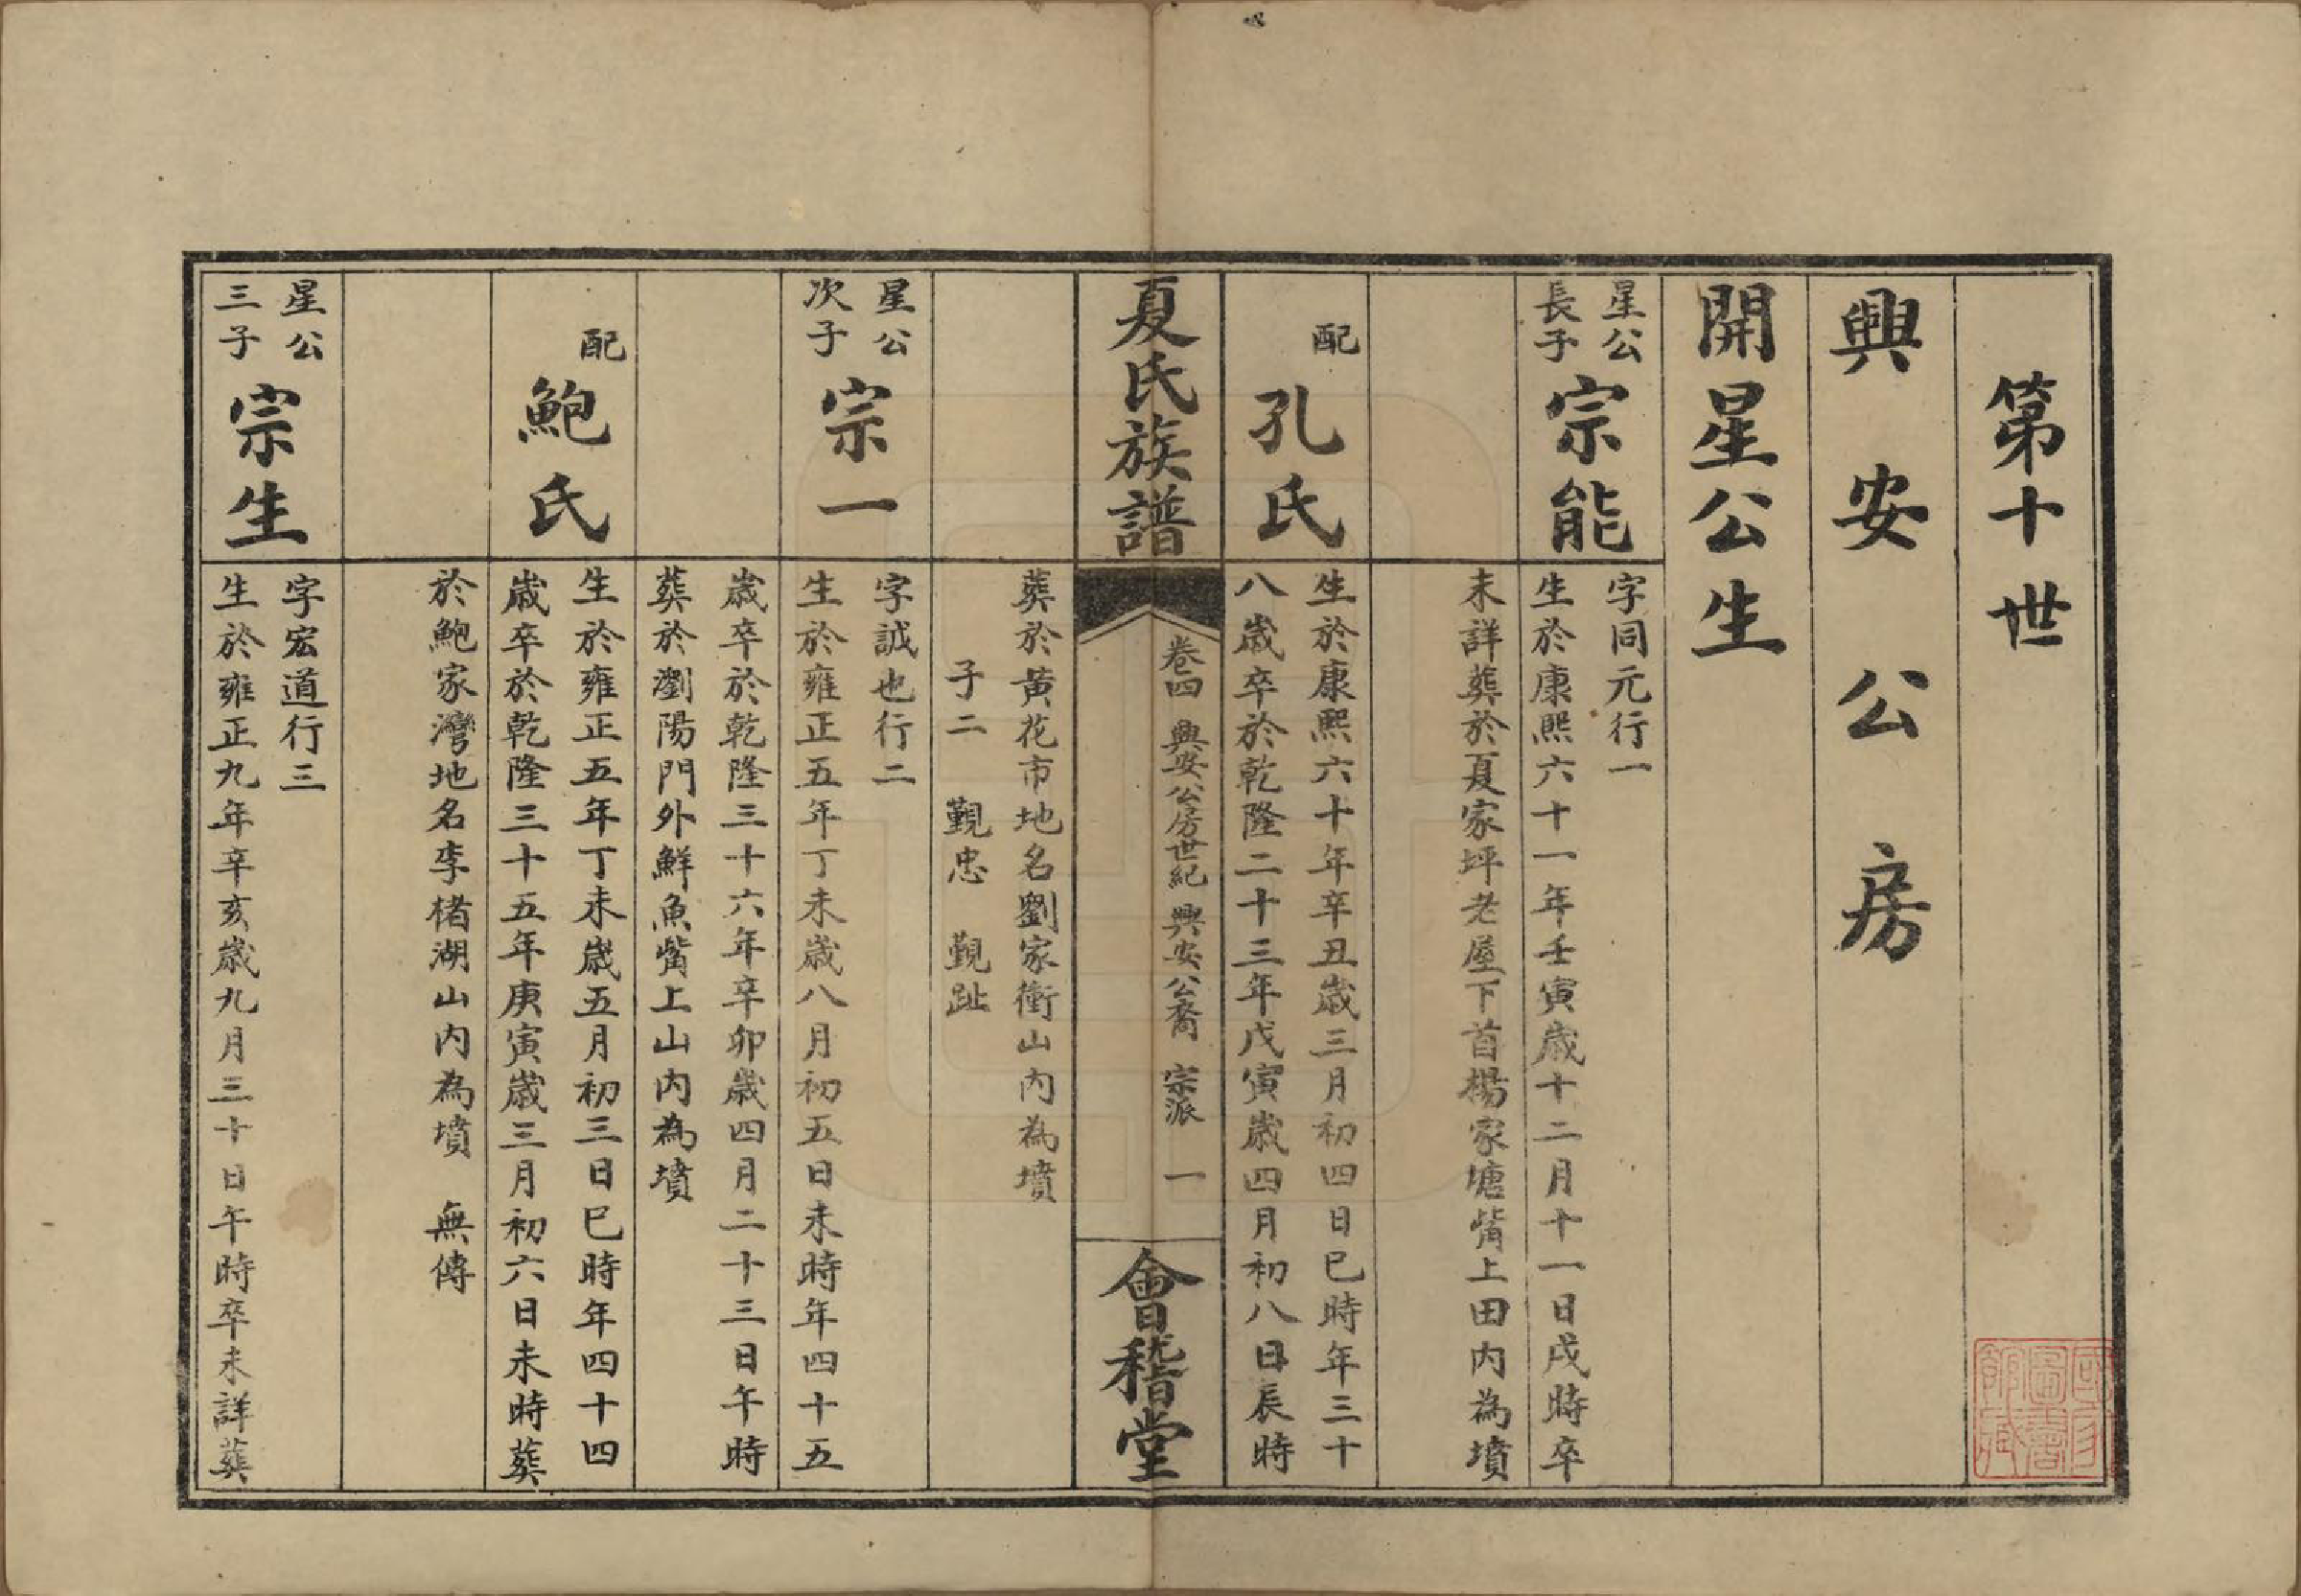 第十世
興安公房
開星公生
星公
長子
宗能
字同元行一
生於康熙六十一年壬寅歲十二月十一日戌時卒
未詳葬於夏家坪老屋下首楊家塘觜上田内為墳
配
孔氏
生於康熙六十年辛丑歲三月初四日巳時年三十
八歲卒於乾隆二十三年戊寅歲四月初八日辰時
夏氏族譜
卷四 興安公房世紀 興安公裔 宗派 一
會稽堂
葬於黄花市地名劉家衝山内為墳
子二 覲忠 覲趾
星公
次子
宗一
字誠也行二
生於雍正五年丁未歲八月初五日未時年四十五
歲卒於乾隆三十六年辛卯歲四月二十三日午時
葬於瀏陽門外鮮魚觜上山内為墳
配
鮑氏
生於雍正五年丁未歲五月初三日巳時年四十四
歲卒於乾隆三十五年庚寅歲三月初六日未時葬
於鮑家灣地名李楮湖山内為墳 無傳
星公
三子
宗生
字宏道行三
生於雍正九年辛亥歲九月三十日午時卒未詳葬
國家圖書館藏